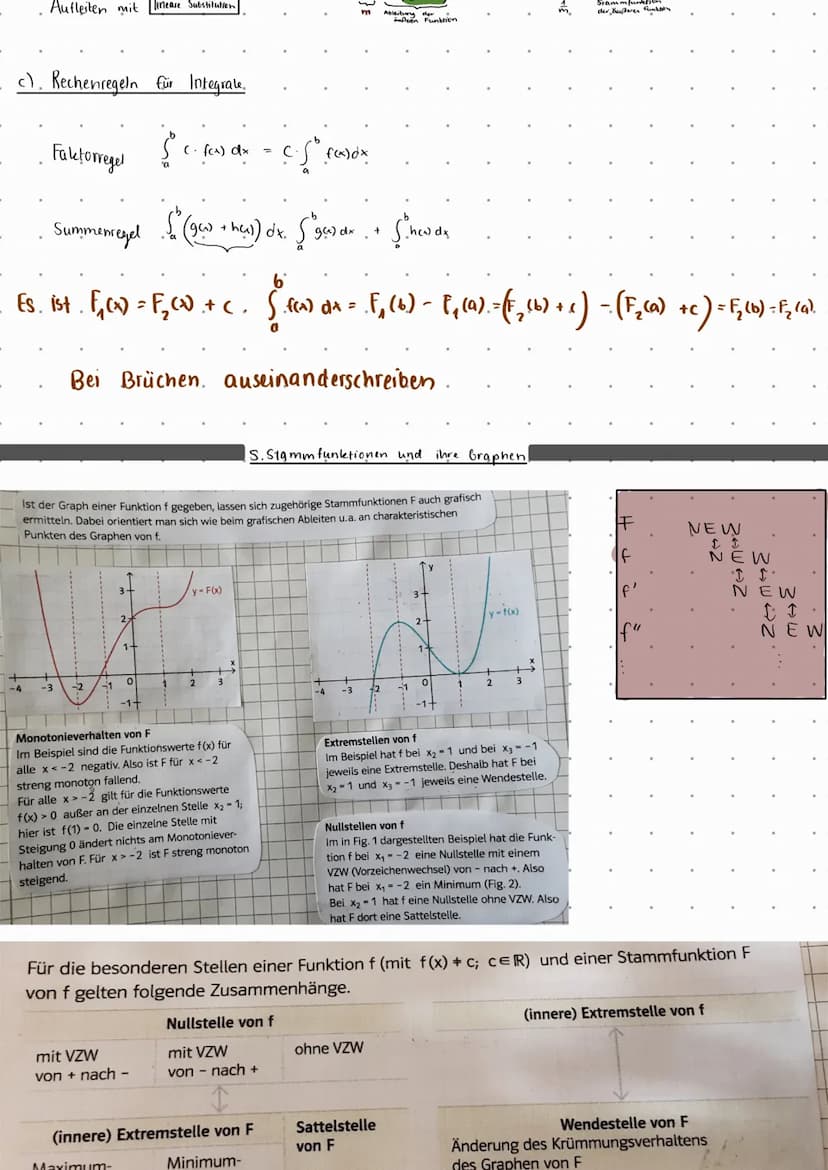 Aufleiten mit lineare Substitution
m Ableitung der inneren Funktion
1/m Stammfunktion der äußeren Funktion
c). Rechenregeln für Integrale.
Faktorregel ∫ₐᵇ c · f(x) dx = c · ∫ₐᵇ f(x) dx
Summenregel ∫ₐᵇ (g(x) + h(x)) dx. ∫ₐᵇ g(x) dx + ∫ₐᵇ h(x) dx
Es ist F₁(x) = F₂(x) + c. ∫ₐᵇ f(x) dx = F₁(b) - F₁(a) = (F₂(b) + c) - (F₂(a) + c) = F₂(b) - F₂(a).
Bei Brüchen auseinanderschreiben.
5. Stammfunktionen und ihre Graphen
Ist der Graph einer Funktion f gegeben, lassen sich zugehörige Stammfunktionen F auch grafisch
ermitteln. Dabei orientiert man sich wie beim grafischen Ableiten u.a. an charakteristischen
Punkten des Graphen von f.
F NEW
f NEW
f' NEW
f" NEW
y = F(x)
3
2
1
-4 -3 -2 -1 0 1 2 3 x
-1
y
3
y = f(x)
2
1
-4 -3 -2 -1 0 1 2 3 x
-1
Monotonieverhalten von F
Im Beispiel sind die Funktionswerte f(x) für
alle x < -2 negativ. Also ist F für x < -2
streng monoton fallend.
Für alle x > -2 gilt für die Funktionswerte
f(x) > 0 außer an der einzelnen Stelle x₂ = 1;
hier ist f(1) = 0. Die einzelne Stelle mit
Steigung 0 ändert nichts am Monotoniever-
halten von F. Für x > -2 ist F streng monoton
steigend.
Extremstellen von f
Im Beispiel hat f bei x₂ = 1 und bei x₃ = -1
jeweils eine Extremstelle. Deshalb hat F bei
x₂ = 1 und x₃ = -1 jeweils eine Wendestelle.
Nullstellen von f
Im in Fig. 1 dargestellten Beispiel hat die Funk-
tion f bei x₁ = -2 eine Nullstelle mit einem
VZW (Vorzeichenwechsel) von - nach +. Also
hat F bei x₁ = -2 ein Minimum (Fig. 2).
Bei x₂ = 1 hat f eine Nullstelle ohne VZW. Also
hat F dort eine Sattelstelle.
Für die besonderen Stellen einer Funktion f (mit f(x) ≠ c; c ∈ ℝ) und einer Stammfunktion F
von f gelten folgende Zusammenhänge.
Nullstelle von f
(innere) Extremstelle von f
mit VZW mit VZW ohne VZW
von + nach - von - nach +
(innere) Extremstelle von F Sattelstelle
von F
Wendestelle von F
Änderung des Krümmungsverhaltens
des Graphen von F
Maximum- Minimum-